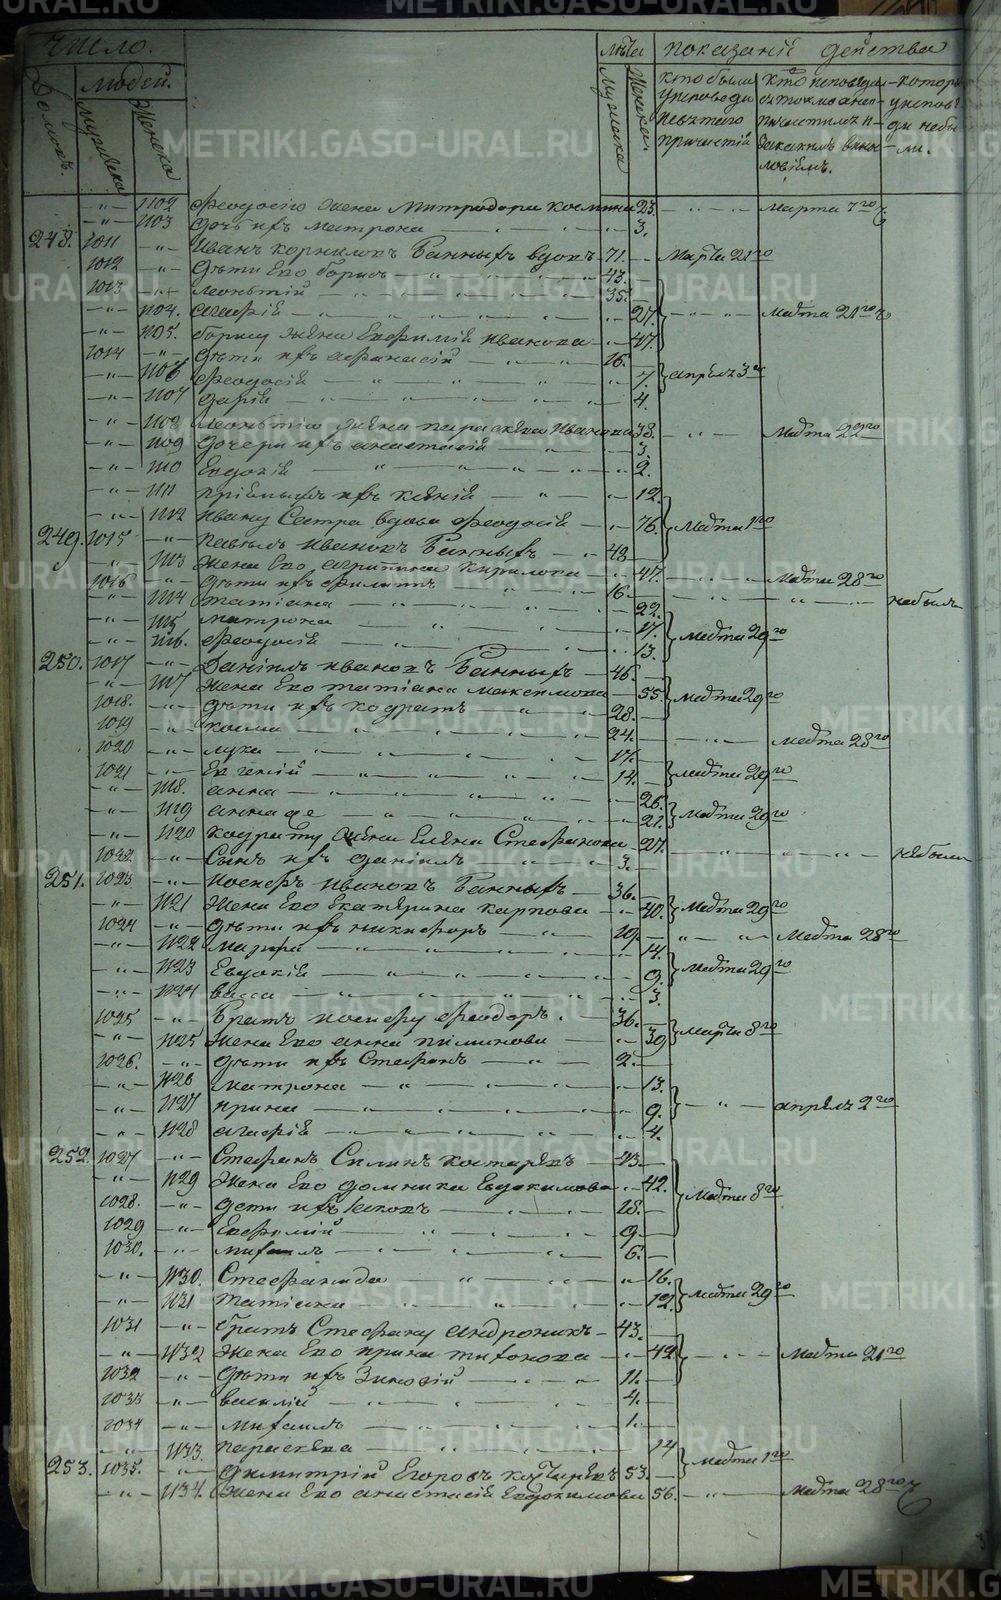 Число.
Лѣта
показаній действа
Домовъ.
людей.
мужеска
Женска
мужеска
Женска
кто были
у исповеди
и святаго
причастія
кто исповеда-
-котор
у испов
ди небы
ли.
1102 Феодосію жена Митродора косм 23. Марта 7го
1103 дочь ихъ матрона 3.
248. 1011 Иванъ корниловъ Банныхъ вдовъ 71. Марта 21го
1012 дѣти Его борисъ 43.
1013 леонтій 35.
1104. агафія 27. марта 21го
1105. борису жена Евфимія иванова 47.
1014 дѣти ихъ афанасій 16.
1106 феодосія 7. апрѣля 3го
1107 дарія 4.
1108 леонтію жена параскева Иванова 38. марта 22го
1109 дочери ихъ анастасія 3.
1110 Евдокія 2.
1111 ксенія 12.
1112 ивану Сестра вдова феодосія 76. марта 1го
249. 1015 павелъ ивановъ Банныхъ 48
1113 жена Его агрипина кирилова 47. марта 28го
1016 дѣти ихъ филипъ 16.
1114 татіана 22. небылъ
1115 матрона 17.
1116. феодосія 13. марта 29го
250. 1017 Даніилъ ивановъ Банныхъ 46.
1117 жена Его татіана максимова 55. марта 29го
1018. дѣти ихъ кодратъ 28.
1019 косма 24. марта 28го
1020 лука 17.
1021 Евгеній 14. марта 29го
1118. анна 26.
1119 анна же 21. марта 29го
1120 кодрату жена Елена Стефанова 27. небыли
1022 Сынъ ихъ даніилъ 3.
251. 1023 иосифъ ивановъ Банныхъ 36.
1121 жена Его Екатерина карпова 40. марта 29го
1024 дѣти ихъ никифоръ 19. марта 28го
1122 марфа 14.
1123 Евдокія 9. марта 29го
1124 васса 3.
1025 братъ иосифу феодоръ. 36.
1125 жена Его анна пиминова 39 марта 8го
1026. дѣти ихъ Стефанъ 2.
1126 матрона 13.
1127 ирина 9. апрѣля 2го
1128 агафія 4.
252. 1027 Стефанъ Силинъ костаревъ 43.
1129 Жена Его домника Евдокимова 42. марта 8го
1028. дѣти ихъ Іаковъ 18.
1029 Евфимій 9.
1030. михаилъ 6.
1130. Стефанида 16.
1131 татіана 12. марта 29го
1031 братъ Стефану андроникъ 43.
1132 жена Его ирина тихонова 42 марта 21го
1032 дѣти ихъ Зиновій 11.
1033 василій 4.
1034 михаилъ 1.
1133. параскева 14 марта 1го
253. 1035. димитрій Егоровъ костаревъ 53.
1134. жена Его анастасія Евдокимова 56. марта 28го
METRIKI.GASO-URAL.RU